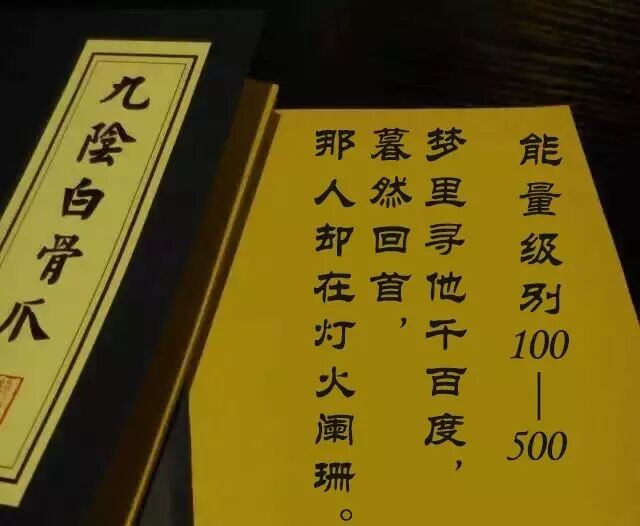 能量级别100—500
梦里寻他千百度，
暮然回首，
那人却在灯火阑珊。
九陰白骨爪